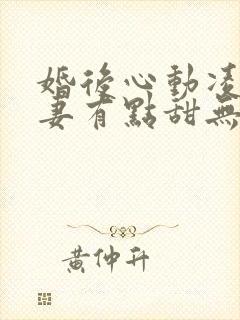 婚後心動凌
妻有點甜無
黃仲升